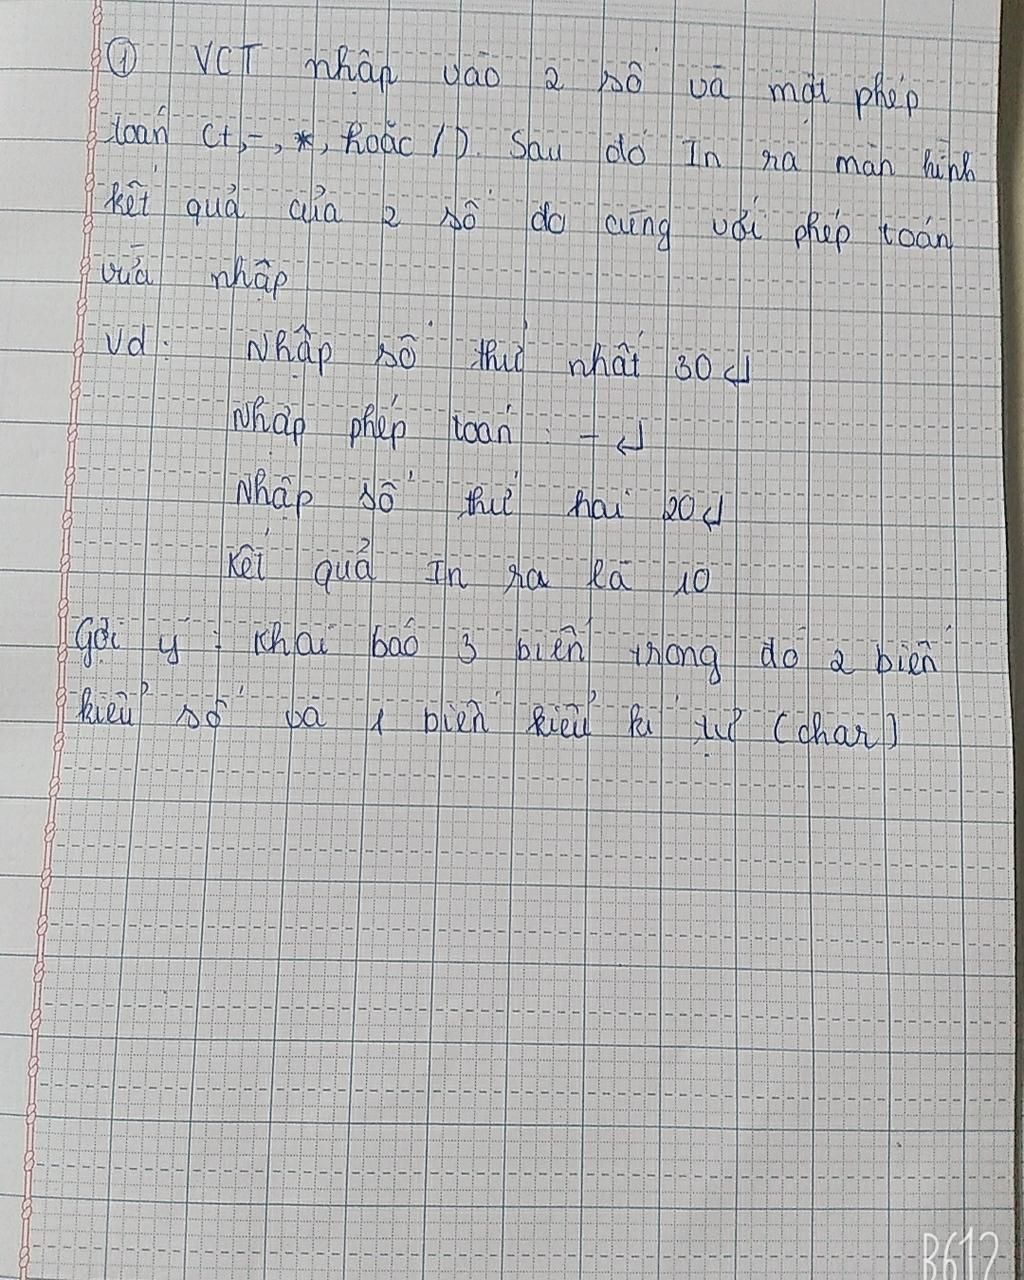 ① VCT nhập vào 2 số và một phép
toán (+, -, *, hoặc /). Sau đó In ra màn hình
kết quả của 2 số đó cùng với phép toán
vừa nhập
Vd: Nhập số thứ nhất 30↵
Nhập phép toán: -↵
Nhập số thứ hai 20↵
Kết quả In ra là 10
Gợi ý: Khai báo 3 biến trong đó 2 biến
kiểu số và 1 biến kiểu kí tự (char)
B612